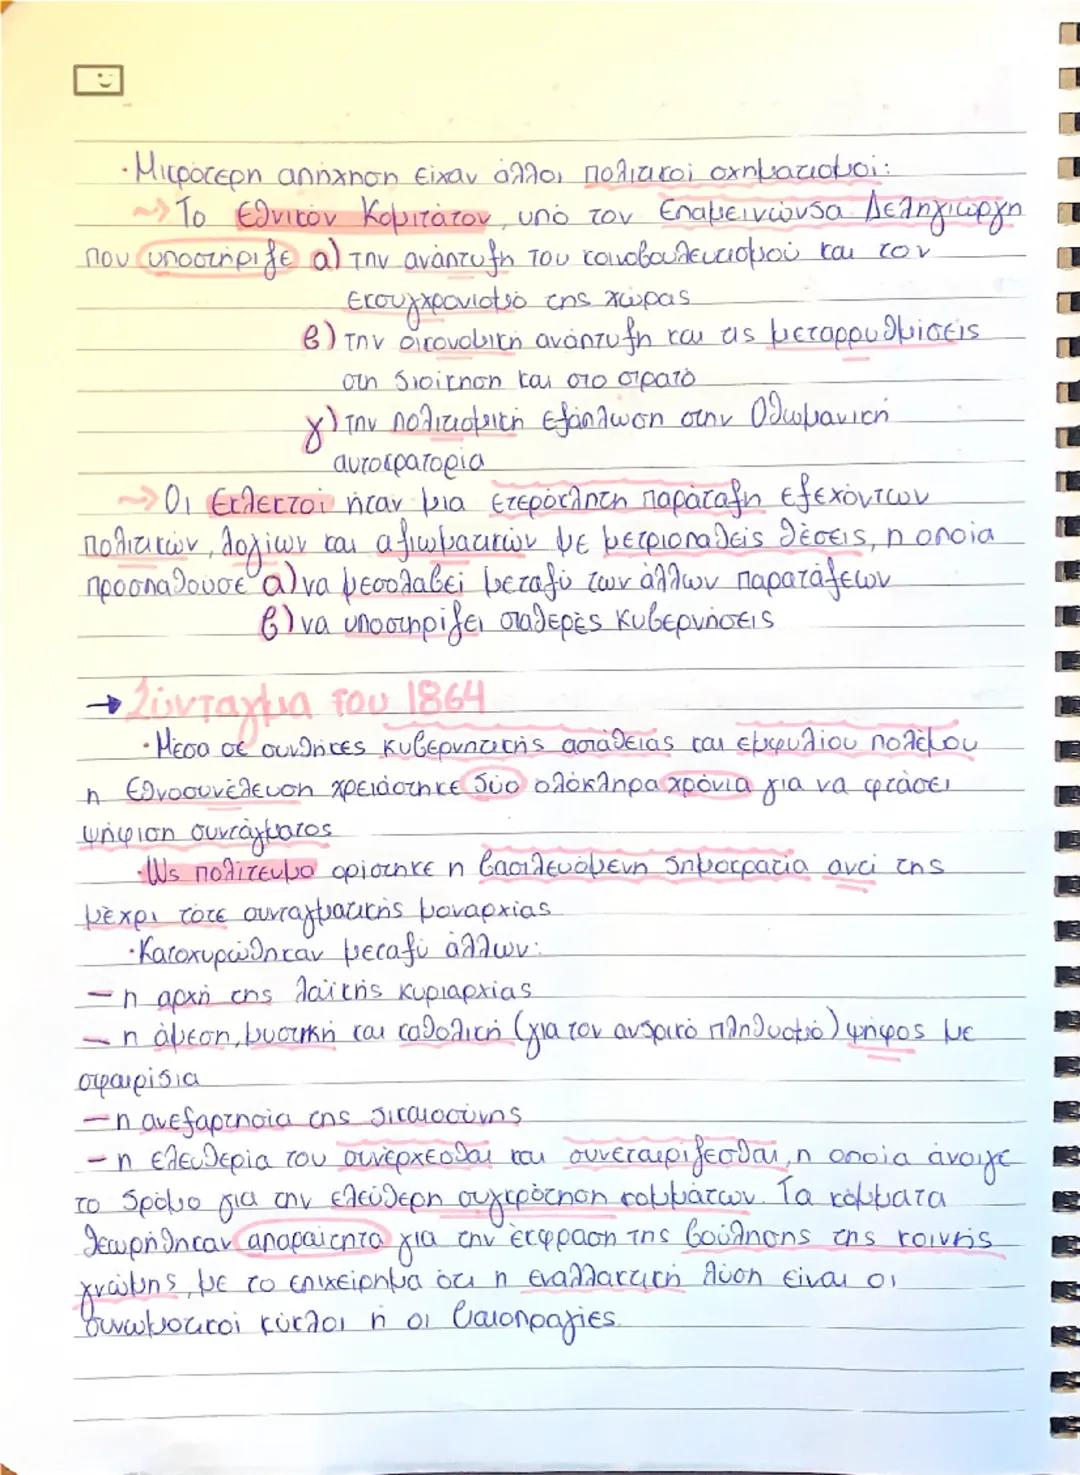 ·Μικρότερη απήχηση είχαν άλλοι πολιτικοί σχηματισμοί:
~> Το Εθνικόν Κομιτάτον, υπό τον Επαμεινώνδα Δεληγιώργη
που υποστήριζε α) την ανάπτυξη του κοινοβουλευτισμού και τον
εκσυγχρονισμό της χώρας
β) την οικονομική ανάπτυξη και τις μεταρρυθμίσεις
στη διοίκηση και στο στρατό
γ) την πολιτισμική εξάπλωση στην Οθωμανική
αυτοκρατορία
~> Οι Εκλεκτοί ήταν μια ετερόκλητη παράταξη εξεχόντων
πολιτικών, λογίων και αξιωματικών με μετριοπαθείς θέσεις, η οποία
προσπαθούσε α) να μεσολαβεί μεταξύ των άλλων παρατάξεων
β) να υποστηρίζει σταθερές κυβερνήσεις
→ Σύνταγμα του 1864
·Μέσα σε συνθήκες κυβερνητικής αστάθειας και εμφυλίου πολέμου
η Εθνοσυνέλευση χρειάστηκε δύο ολόκληρα χρόνια για να φτάσει
ψήφιση συντάγματος
·Ως πολίτευμα ορίστηκε η βασιλευόμενη δημοκρατία αντί της
μέχρι τότε συνταγματικής μοναρχίας
·Κατοχυρώθηκαν μεταξύ άλλων:
— η αρχή της λαϊκής κυριαρχίας
— η άμεση, μυστική και καθολική (για τον ανδρικό πληθυσμό) ψήφος με
σφαιρίδια
— η ανεξαρτησία της δικαιοσύνης
— η ελευθερία του συνέρχεσθαι και συνεταιρίζεσθαι, η οποία άνοιγε
το δρόμο για την ελεύθερη συγκρότηση κομμάτων. Τα κόμματα
θεωρήθηκαν απαραίτητα για την έκφραση της βούλησης της κοινής
γνώμης, με το επιχείρημα ότι η εναλλακτική λύση είναι οι
συνωμοτικοί κύκλοι ή οι βιαιοπραγίες.